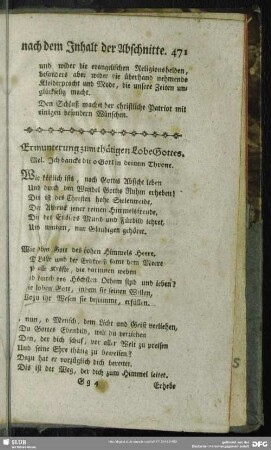 nach dem Inhalt der Abschnitte. 471
und wider die evangelischen Religionsheiden,
besonders aber wider die überhand nehmende
Kleiderpracht und Mode, die unsere Zeiten un-
glückselig macht.
Den Schluß machet der christliche Patriot mit
einigen besondern Wünschen.
Ermunterung zum thätigen Lobe Gottes.
Mel. Ich dancke dir o Gott in deinem Throne.
Wie köstlich ists, nach Gottes Absicht leben
Und durch den Wandel Gottes Ruhm erheben!
Dis ist des Christen hohe Seelenweide,
Der Himmelsfreude,
Die des Mund und Fürbitt
Und wir, nur Gläubigen gehöret.
Wie eben Gott des hohen Himmels Heere,
Die Läste und der Erdkreiß samt dem Meere
alle Kräfte, die darinnen weben
durch des Höchsten Othem sind und leben?
loben Gott, indem sie seinen Willen,
Wozu ihr Wesen sie bestimmt, erfüllen.
nun, o Mensch, dem Licht und Geist verliehen,
Du Gottes Ebenbild, wie du verziehen
Den, der dich schuf, vor aller Welt zu preisen
Und seine Ehre thätig zu beweisen?
Dazu hat er vorzüglich dich bereitet.
Das ist der Weg, der dich zum Himmel leitet.
Gg 4 Erhebe
5
SLUB
DFG